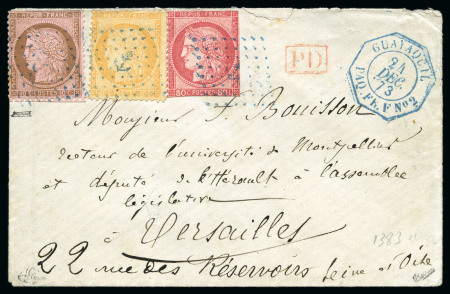 REPUB. FRANC. REPUB. FRANC. REPUB. FRANC.
80 C. POSTES 80 C.
PD
GUAYAQUIL
21
DEC.
73
PAQ. FR. F No 2
Monsieur Bouisson
recteur de l'université de Montpellier
et député de l'Hérault à l'assemblée
législative
à
Versailles
22 rue des Réservoirs Seine et Oise
1383